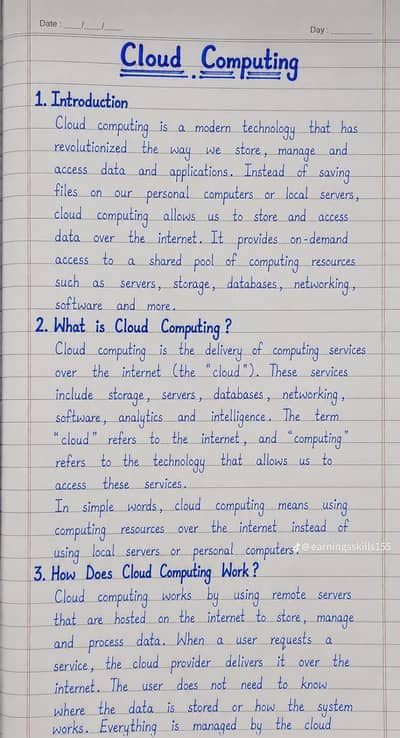 Date : ___/___/___
Day : ________
Cloud Computing
1. Introduction
Cloud computing is a modern technology that has
revolutionized the way we store, manage and
access data and applications. Instead of saving
files on our personal computers or local servers,
cloud computing allows us to store and access
data over the internet. It provides on-demand
access to a shared pool of computing resources
such as servers, storage, databases, networking,
software and more.
2. What is Cloud Computing?
Cloud computing is the delivery of computing services
over the internet (the "cloud"). These services
include storage, servers, databases, networking,
software, analytics and intelligence. The term
"cloud" refers to the internet, and "computing"
refers to the technology that allows us to
access these services.
In simple words, cloud computing means using
computing resources over the internet instead of
using local servers or personal computers.
@earningsskills155
3. How Does Cloud Computing Work?
Cloud computing works by using remote servers
that are hosted on the internet to store, manage
and process data. When a user requests a
service, the cloud provider delivers it over the
internet. The user does not need to know
where the data is stored or how the system
works. Everything is managed by the cloud